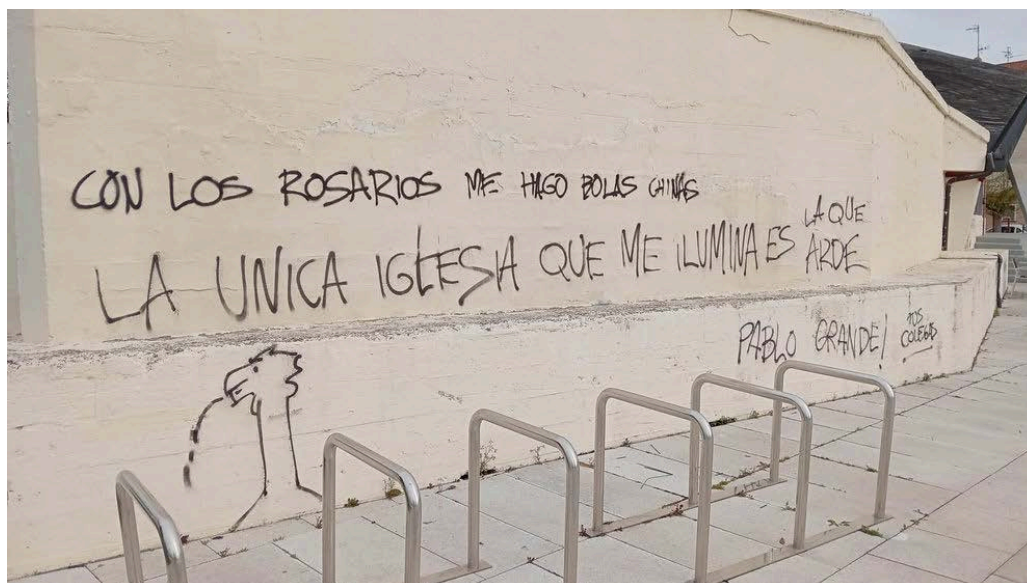 CON LOS ROSARIOS ME HAGO BOLAS CHINAS
LA UNICA IGLESIA QUE ME ILUMINA ES LA QUE
ARDE
PABLO GRANDE! TUS
COLEGAS